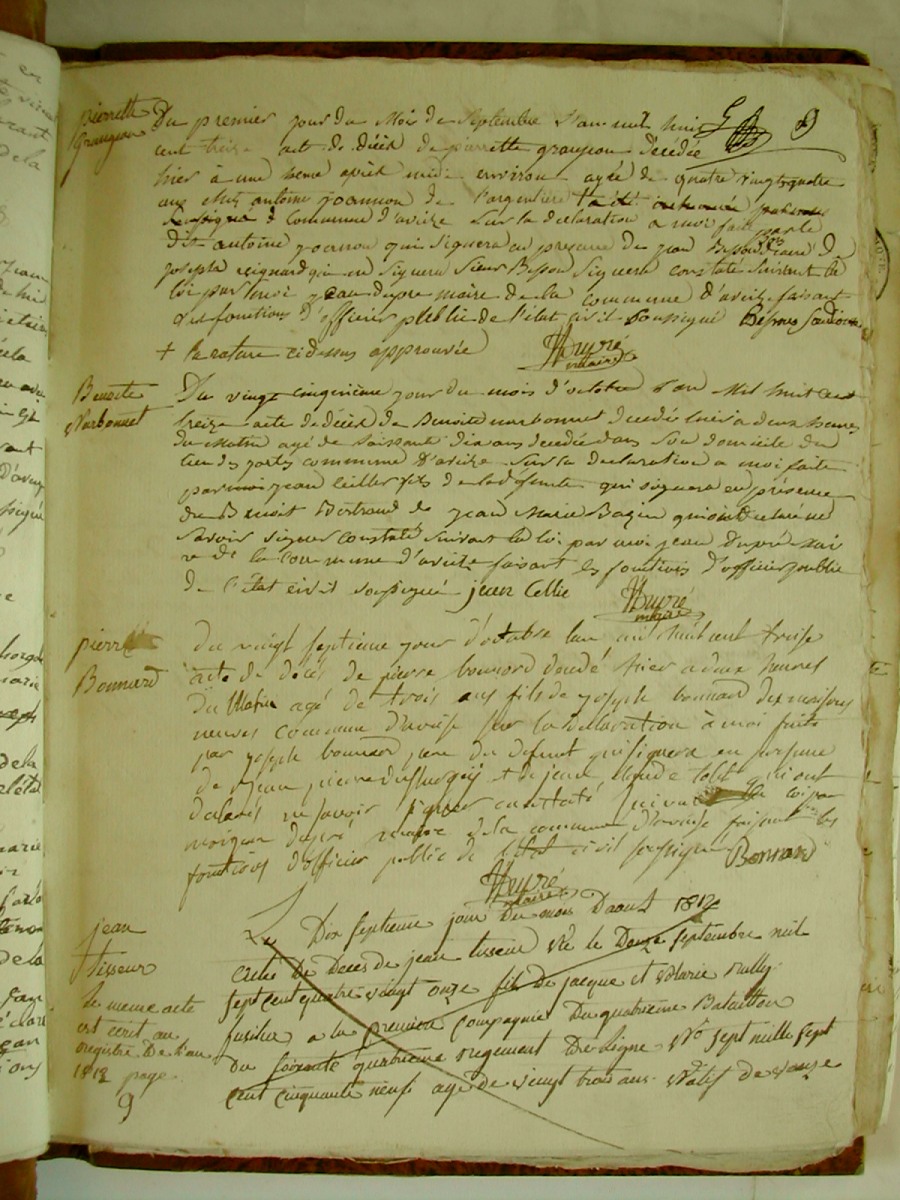 pierrette
Granjean
Du premier jour du Mois de Septembre L'an mil huit
cent treize acte de décés de pierrette granjeon decedée
hier à une heure aprés midi environ agée de quatre vingt quatre
ans chez antoine joannon de l'argentiere
commune d'aveize sur la declaration a moi faite par le
dit antoine joannon qui signera en presence de jean Besson
joseph reignard qui en signera sieur Besson signera constaté suivant la
loi par moi jean dupré maire de la commune d'aveize faisant
les fonctions d'officier public de l'état civil soussigné Besson
+ la rature cidessus approuvée Dupré
maire
Benoite
Narbonnet
Du vingt cinquième jour du mois d'octobre l'an Mil huit cent
treize acte de décés de Benoite narbonnet decedée hier a deux heures
du Matin agé de soissante dix ans decedée dans son domicile du
lieu des portes commune d'aveize sur la declaration a moi faite
par moi jean cellier fils de la défunte qui signera en présence
de Benoit Bertrand de jean Marie Bazin qui ont declaré ne
savoir signer constaté suivant la loi par moi jean dupré mai
re de la commune d'aveize faisant les fonctions d'officier public
de l'état civil soussigné jean Cellie Dupré
maire
pierre
Bonnard
du vingt septieme jour d'octobre lan mil huit cent treise
acte de décés de pierre bonnard decedé hier a deux heures
du Matin agé de trois ans fils de joseph bonnard des maisons
neuves commune d'aveise sur la declaration à moi faite
par joseph bonnard pere du defunt qui signera en presence
de jean pierre et de jean claude qui ont
declarés ne savoir signer constaté suivant la loi par
moi jean dupré maire de la commune d'aveise faisant les
fonctions d'officier public de l'etat civil soussigné Bonnard
Dupré
maire
jean
tisseur
le meme acte
est ecrit au
registre de l'an
1812 page
9
Le Dix septieme jour du mois D'aoust 1812
acte de Deces de jean tisseur né le Douze septembre mil
sept cent quatre vingt onze fils de jacque et Marie
fusilier a la premiere compagnie du quatrieme Bataillon
du soixante quatrieme regiment De ligne No sept mille sept
cent cinquante neuf agé de vingt trois ans Natif de